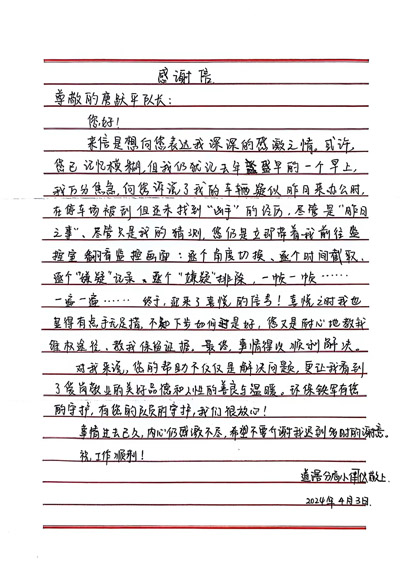 感谢信
尊敬的唐跃平队长:
您好!
来信是想向您表达我深深的感激之情。或许,
您已记忆模糊,但我仍然记去年盛夏早的一个早上,
我万分焦急,向您诉说了我的车辆疑似昨日来办公时,
在停车场被刮但并未找到“凶手”的经历,尽管是“昨日
之事”、尽管只是我的猜测,您仍是立即带着我前往监
控室翻看监控画面:逐个角度切换、逐个时间截取、
逐个“嫌疑”记录、逐个“嫌疑”排除,一帧一帧……
一遍一遍……终于,迎来了喜悦的信号!喜悦之时我也
显得有点手足无措,不知下步如何时是好,您又是耐心地教我
维权途径、教我保留证据。最终,事情得以顺利解决。
对我来说,您的帮助不仅仅是解决问题,更让我看到
了爱岗敬业的美好品德和人性的善良与温暖。环保铁军有您
的守护,有您的 的守护,我们很放心!
事情过去已久,内心仍感激不尽,希望不要介意我迟到多时的谢意。
祝:工作顺利!
分局小 敬上
2024年4月3日